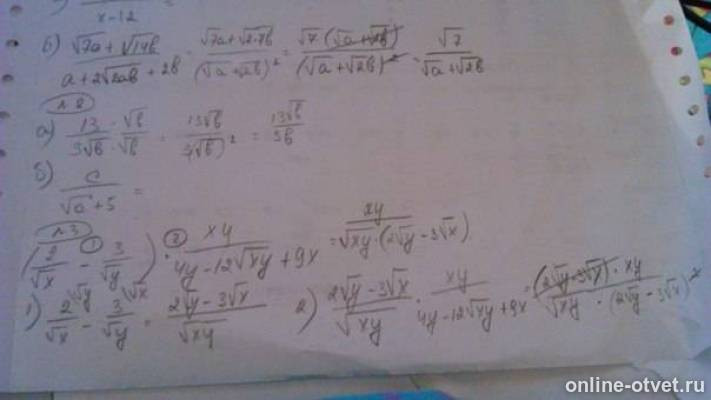 x-12 =
б) (√7a + √14b)/(a + 2√2ab + 2b) = (√7a + √2·7b)/(√a + √2b)² = √7(√a + √2b)/(√a + √2b)² = √7/(√a + √2b)
№2
а) 13·√b/3√b·√b = 13√b/3(√b)² = 13√b/3b
б) c/√a + 5 =
№3
(2/√x - 3/√y) · xy/(4y - 12√xy + 9x) = xy/√xy·(2√y - 3√x)
1) 2/√x - 3/√y = (2√y - 3√x)/√xy 2) (2√y - 3√x)/√xy · xy/(4y - 12√xy + 9x) = (2√y - 3√x)·xy/√xy·(2√y - 3√x)²
online-otvet.ru